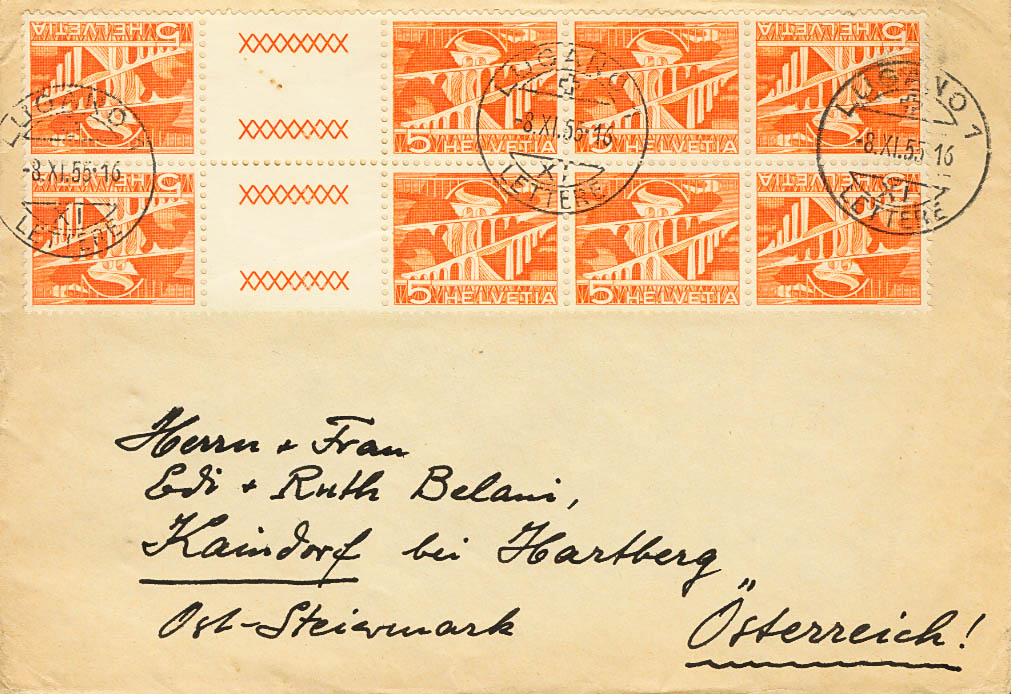 5 HELVETIA
XXXXXXXX
5 HELVETIA
5 HELVETIA
5 HELVETIA
XXXXXXXX
5 HELVETIA
XXXXXXXX
5 HELVETIA
5 HELVETIA
5 HELVETIA
XXXXXXXX
LUGANO
-8.XI.55·16
XI
LETTERE
LUGANO
-8.XI.55·16
XI
LETTERE
LUGANO 1
-8.XI.55·16
XI
LETTERE
Herrn + Frau
Edi + Ruth Belani,
Kaindorf bei Hartberg
Ost-Steiermark
Österreich!